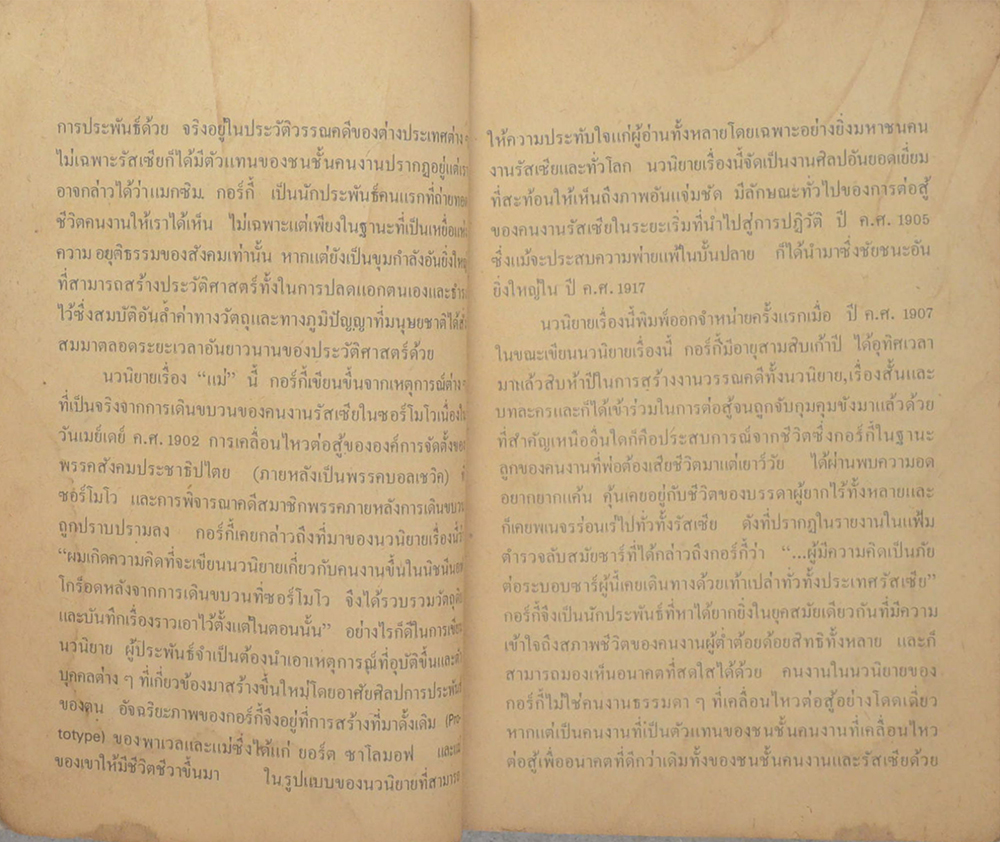 การประพันธ์ด้วย จริงอยู่ในประวัติวรรณคดีของต่างประเทศต่าง
ไม่เฉพาะรัสเซียก็ได้มีตัวแทนของชนชั้นคนงานปรากฏอยู่แต่เรา
อาจกล่าวได้ว่าแมกซิม กอร์กี้ เป็นนักประพันธ์คนแรกที่ถ่ายทอด
ชีวิตคนงานให้เราได้เห็น ไม่เฉพาะแต่เพียงในฐานะที่เป็นเหยื่อแห่ง
ความ อยุติธรรมของสังคมเท่านั้น หากแต่ยังเป็นขุมกำลังอันยิ่งใหญ่
ที่สามารถสร้างประวัติศาสตร์ทั้งในการปลดแอกตนเองและธำรง
ไว้ซึ่งสมบัติอันล้ำค่าทางวัตถุและทางภูมิปัญญาที่มนุษยชาติได้สั่ง
สมมาตลอดระยะเวลาอันยาวนานของประวัติศาสตร์ด้วย
นวนิยายเรื่อง “แม่” นี้ กอร์กี้เขียนขึ้นจากเหตุการณ์ต่าง ๆ
ที่เป็นจริงจากการเดินขบวนของคนงานรัสเซียในซอร์โมโวเนื่องใน
วันเมย์เดย์ ค.ศ. 1902 การเคลื่อนไหวต่อสู้ขององค์การจัดตั้งของ
พรรคสังคมประชาธิปไตย (ภายหลังเป็นพรรคบอลเชวิค)
ซอร์โมโว และการพิจารณาคดีสมาชิกพรรคภายหลังการเดินขบวน
ถูกปราบปรามลง กอร์กี้เคยกล่าวถึงที่มาของนวนิยายเรื่องนี้ว่า
“ผมเกิดความคิดที่จะเขียนนวนิยายเกี่ยวกับคนงานขึ้นในนิชนีนอฟ
โกร็อดหลังจากการเดินขบวนที่ซอร์โมโว จึงได้รวบรวมวัตถุดิบ
และบันทึกเรื่องราวเอาไว้ตั้งแต่ในตอนนั้น” อย่างไรก็ดีในการเขียน
นวนิยาย ผู้ประพันธ์จำเป็นต้องนำเอาเหตุการณ์ที่อุบัติขึ้นและตัว
บุคคลต่าง ๆ ที่เกี่ยวข้องมาสร้างขึ้นใหม่โดยอาศัยศิลปการประพันธ์
ของตน อัจฉริยะภาพของกอร์กี้จึงอยู่ที่การสร้างที่มาดั้งเดิม (Pro-
totype) ของพาเวลและแม่ซึ่งได้แก่ ยอร์ด ซาโลมอฟ และแม่
ของเขาให้มีชีวิตชีวาขึ้นมา ในรูปแบบของนวนิยายที่สามารถ
ให้ความประทับใจแก่ผู้อ่านทั้งหลายโดยเฉพาะอย่างยิ่งมหาชนคน
งานรัสเซียและทั่วโลก นวนิยายเรื่องนี้จัดเป็นงานศิลปอันยอดเยี่ยม
ที่สะท้อนให้เห็นถึงภาพอันแจ่มชัด มีลักษณะทั่วไปของการต่อสู้
ของคนงานรัสเซียในระยะเริ่มที่นำไปสู่การปฏิวัติ ปี ค.ศ. 1905
ซึ่งแม้จะประสบความพ่ายแพ้ในบั้นปลาย ก็ได้นำมาซึ่งชัยชนะอัน
ยิ่งใหญ่ใน ปี ค.ศ. 1917
นวนิยายเรื่องนี้พิมพ์ออกจำหน่ายครั้งแรกเมื่อ ปี ค.ศ. 1907
ในขณะเขียนนวนิยายเรื่องนี้ กอร์กี้มีอายุสามสิบเก้าปี ได้อุทิศเวลา
มาแล้วสิบห้าปีในการสร้างงานวรรณคดีทั้งนวนิยาย,เรื่องสั้นและ
บทละครและก็ได้เข้าร่วมในการต่อสู้จนถูกจับกุมคุมขังมาแล้วด้วย
ที่สำคัญเหนืออื่นใดก็คือประสบการณ์จากชีวิตซึ่งกอร์กี้ในฐานะ
ลูกของคนงานที่พ่อต้องเสียชีวิตมาแต่เยาว์วัย ได้ผ่านพบความอด
อยากยากแค้น คุ้นเคยอยู่กับชีวิตของบรรดาผู้ยากไร้ทั้งหลายและ
ก็เคยพเนจรร่อนเร่ไปทั่วทั้งรัสเซีย ดังที่ปรากฏในรายงานในแฟ้ม
ตำรวจลับสมัยซาร์ที่ได้กล่าวถึงกอร์กี้ว่า “...ผู้มีความคิดเป็นภัย
ต่อระบอบซาร์ผู้นี้เคยเดินทางด้วยเท้าเปล่าทั่วทั้งประเทศรัสเซีย”
กอร์กี้จึงเป็นนักประพันธ์ที่หาได้ยากยิ่งในยุคสมัยเดียวกันที่มีความ
เข้าใจถึงสภาพชีวิตของคนงานผู้ต่ำต้อยด้อยสิทธิทั้งหลาย และก็
สามารถมองเห็นอนาคตที่สดใสได้ด้วย คนงานในนวนิยายของ
กอร์กี้ไม่ใช่คนงานธรรมดา ๆ ที่เคลื่อนไหวต่อสู้อย่างโดดเดี่ยว
หากแต่เป็นคนงานที่เป็นตัวแทนของชนชั้นคนงานที่เคลื่อนไหว
ต่อสู้เพื่ออนาคตที่ดีกว่าเดิมทั้งของชนชั้นคนงานและรัสเซียด้วย